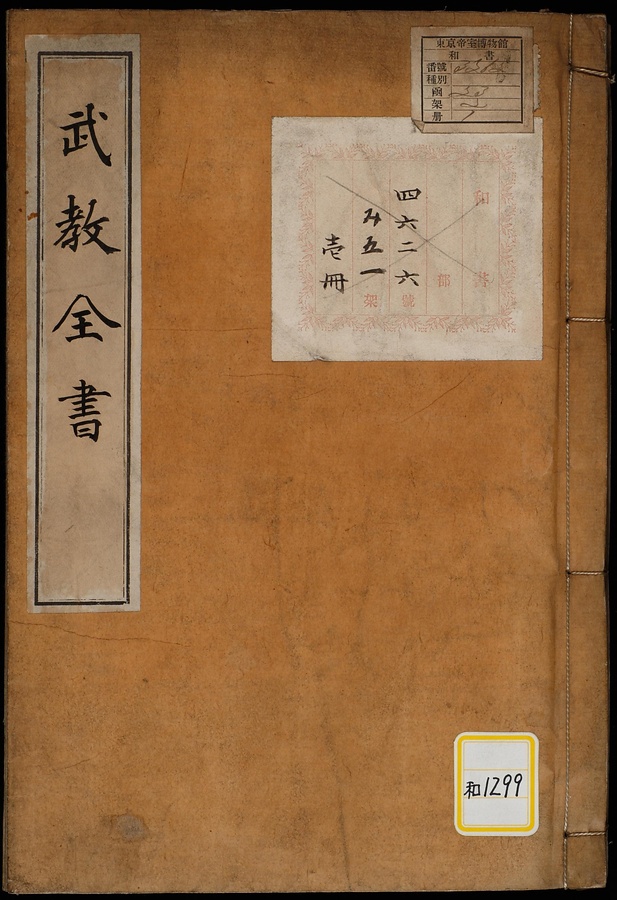 武教全書
東京帝室博物館
和書
番號
種別
函
架
册
和書
部
四六二六號
み五一架
壱冊
和1299